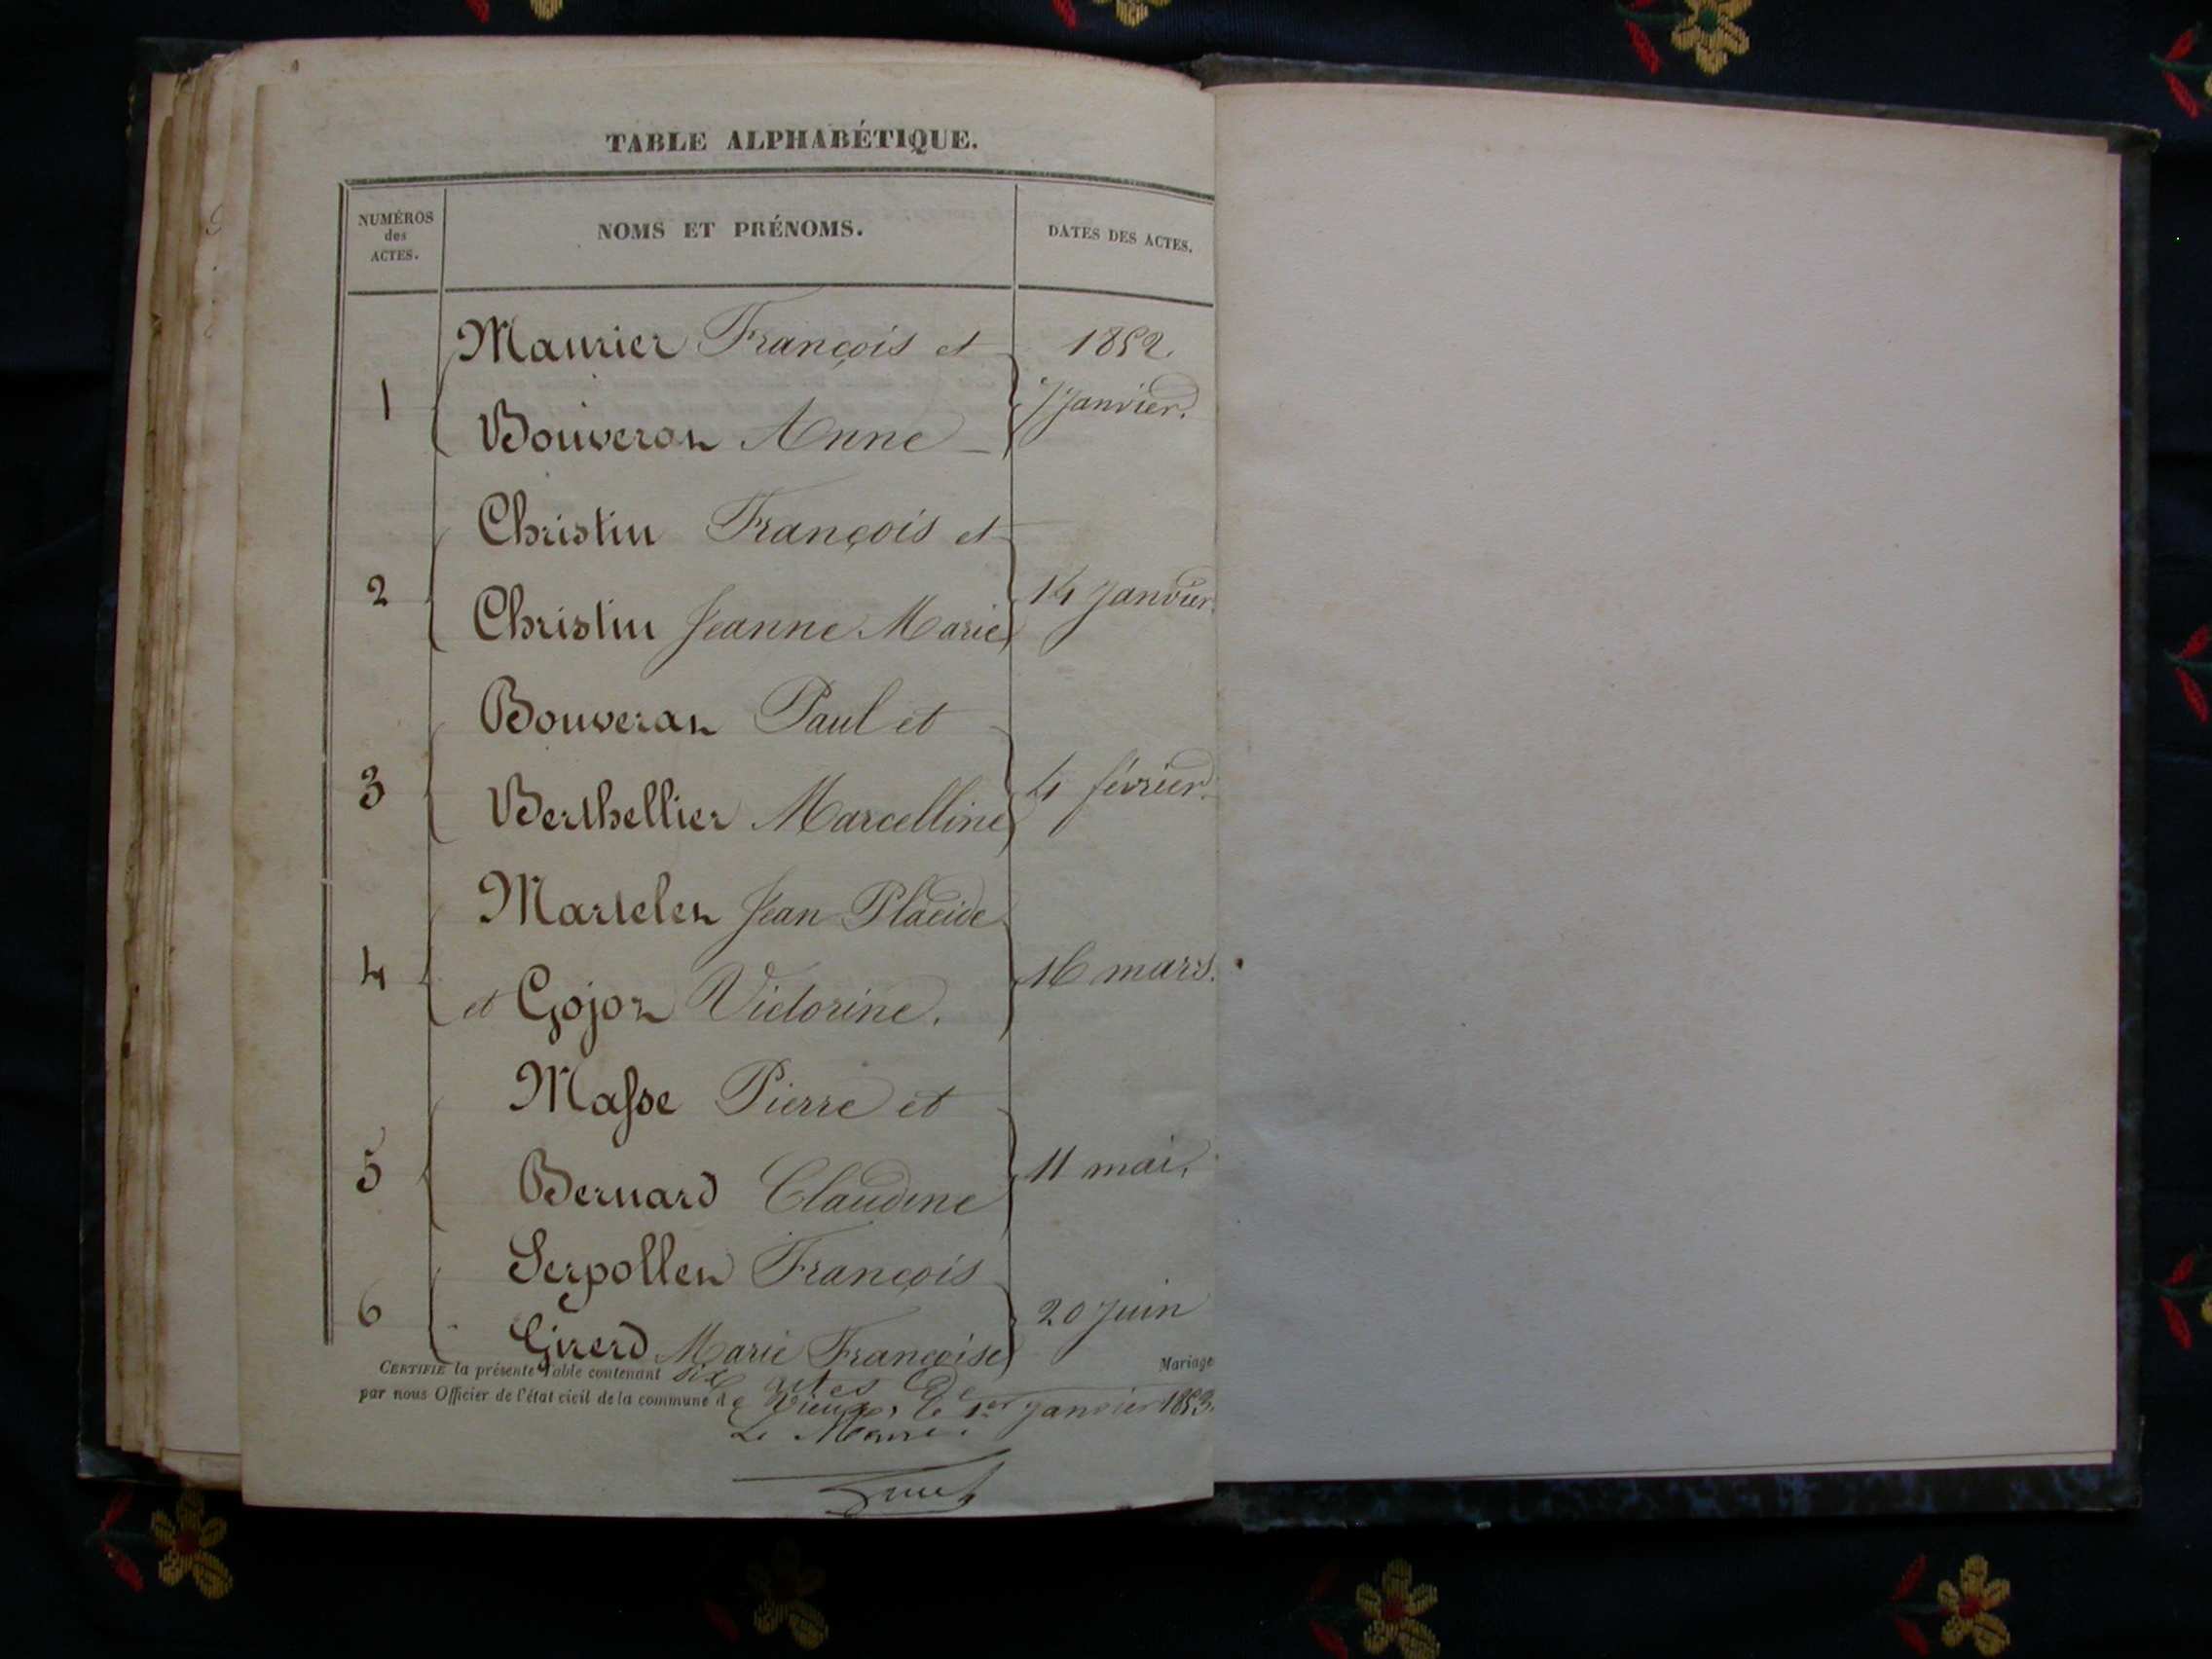 TABLE ALPHABÉTIQUE.
NUMÉROS
des
ACTES.
NOMS ET PRÉNOMS.
DATES DES ACTES.
Maurier François et
1852.
1
7 Janvier.
Bouveron Anne
Christin François et
2
14 Janvier.
Christin Jeanne Marie
Bouveran Paul et
3
4 février.
Berthellier Marcelline
Martelen Jean Placide
4
16 mars.
et Gojon Victorine.
Masse Pierre et
5
11 mai.
Bernard Claudine
Serpollen François
6
20 Juin
Girerd Marie Françoise
CERTIFIÉ la présente Table contenant six actes de Mariage
par nous Officier de l'état civil de la commune de le 1er Janvier 1853.
Le Maire.